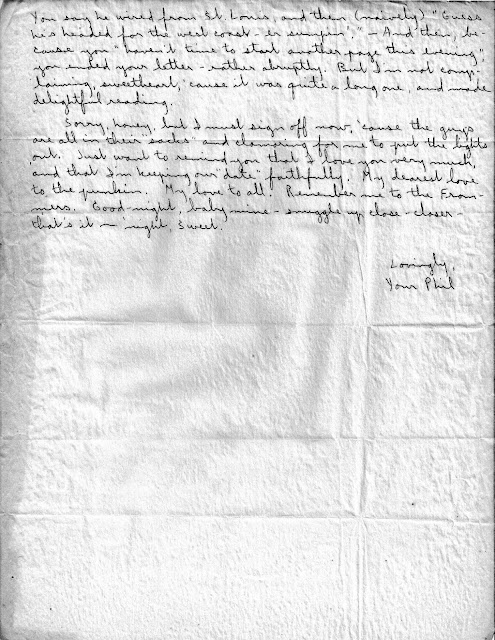 You say he wired from St. Louis, and then (naively) "Guess
he's headed for the west coast - er sumpin'," - And then, be-
cause you "haven't time to start another page this evening"
you ended your letter - rather abruptly. But I'm not comp-
laining, sweetheart, 'cause it was quite a long one, and made
delightful reading.
Sorry, honey, but I must sign off now, 'cause the guys
are all in their "sacks" and clamoring for me to put the lights
out. Just want to remind you that I love you very much,
and that I'm keeping our "date" faithfully. My dearest love
to the punkin. My love to all. Remember me to the From-
mers. Good night, baby mine - snuggle up close - closer -
that's it - night, Sweet.
Lovingly,
Your Phil